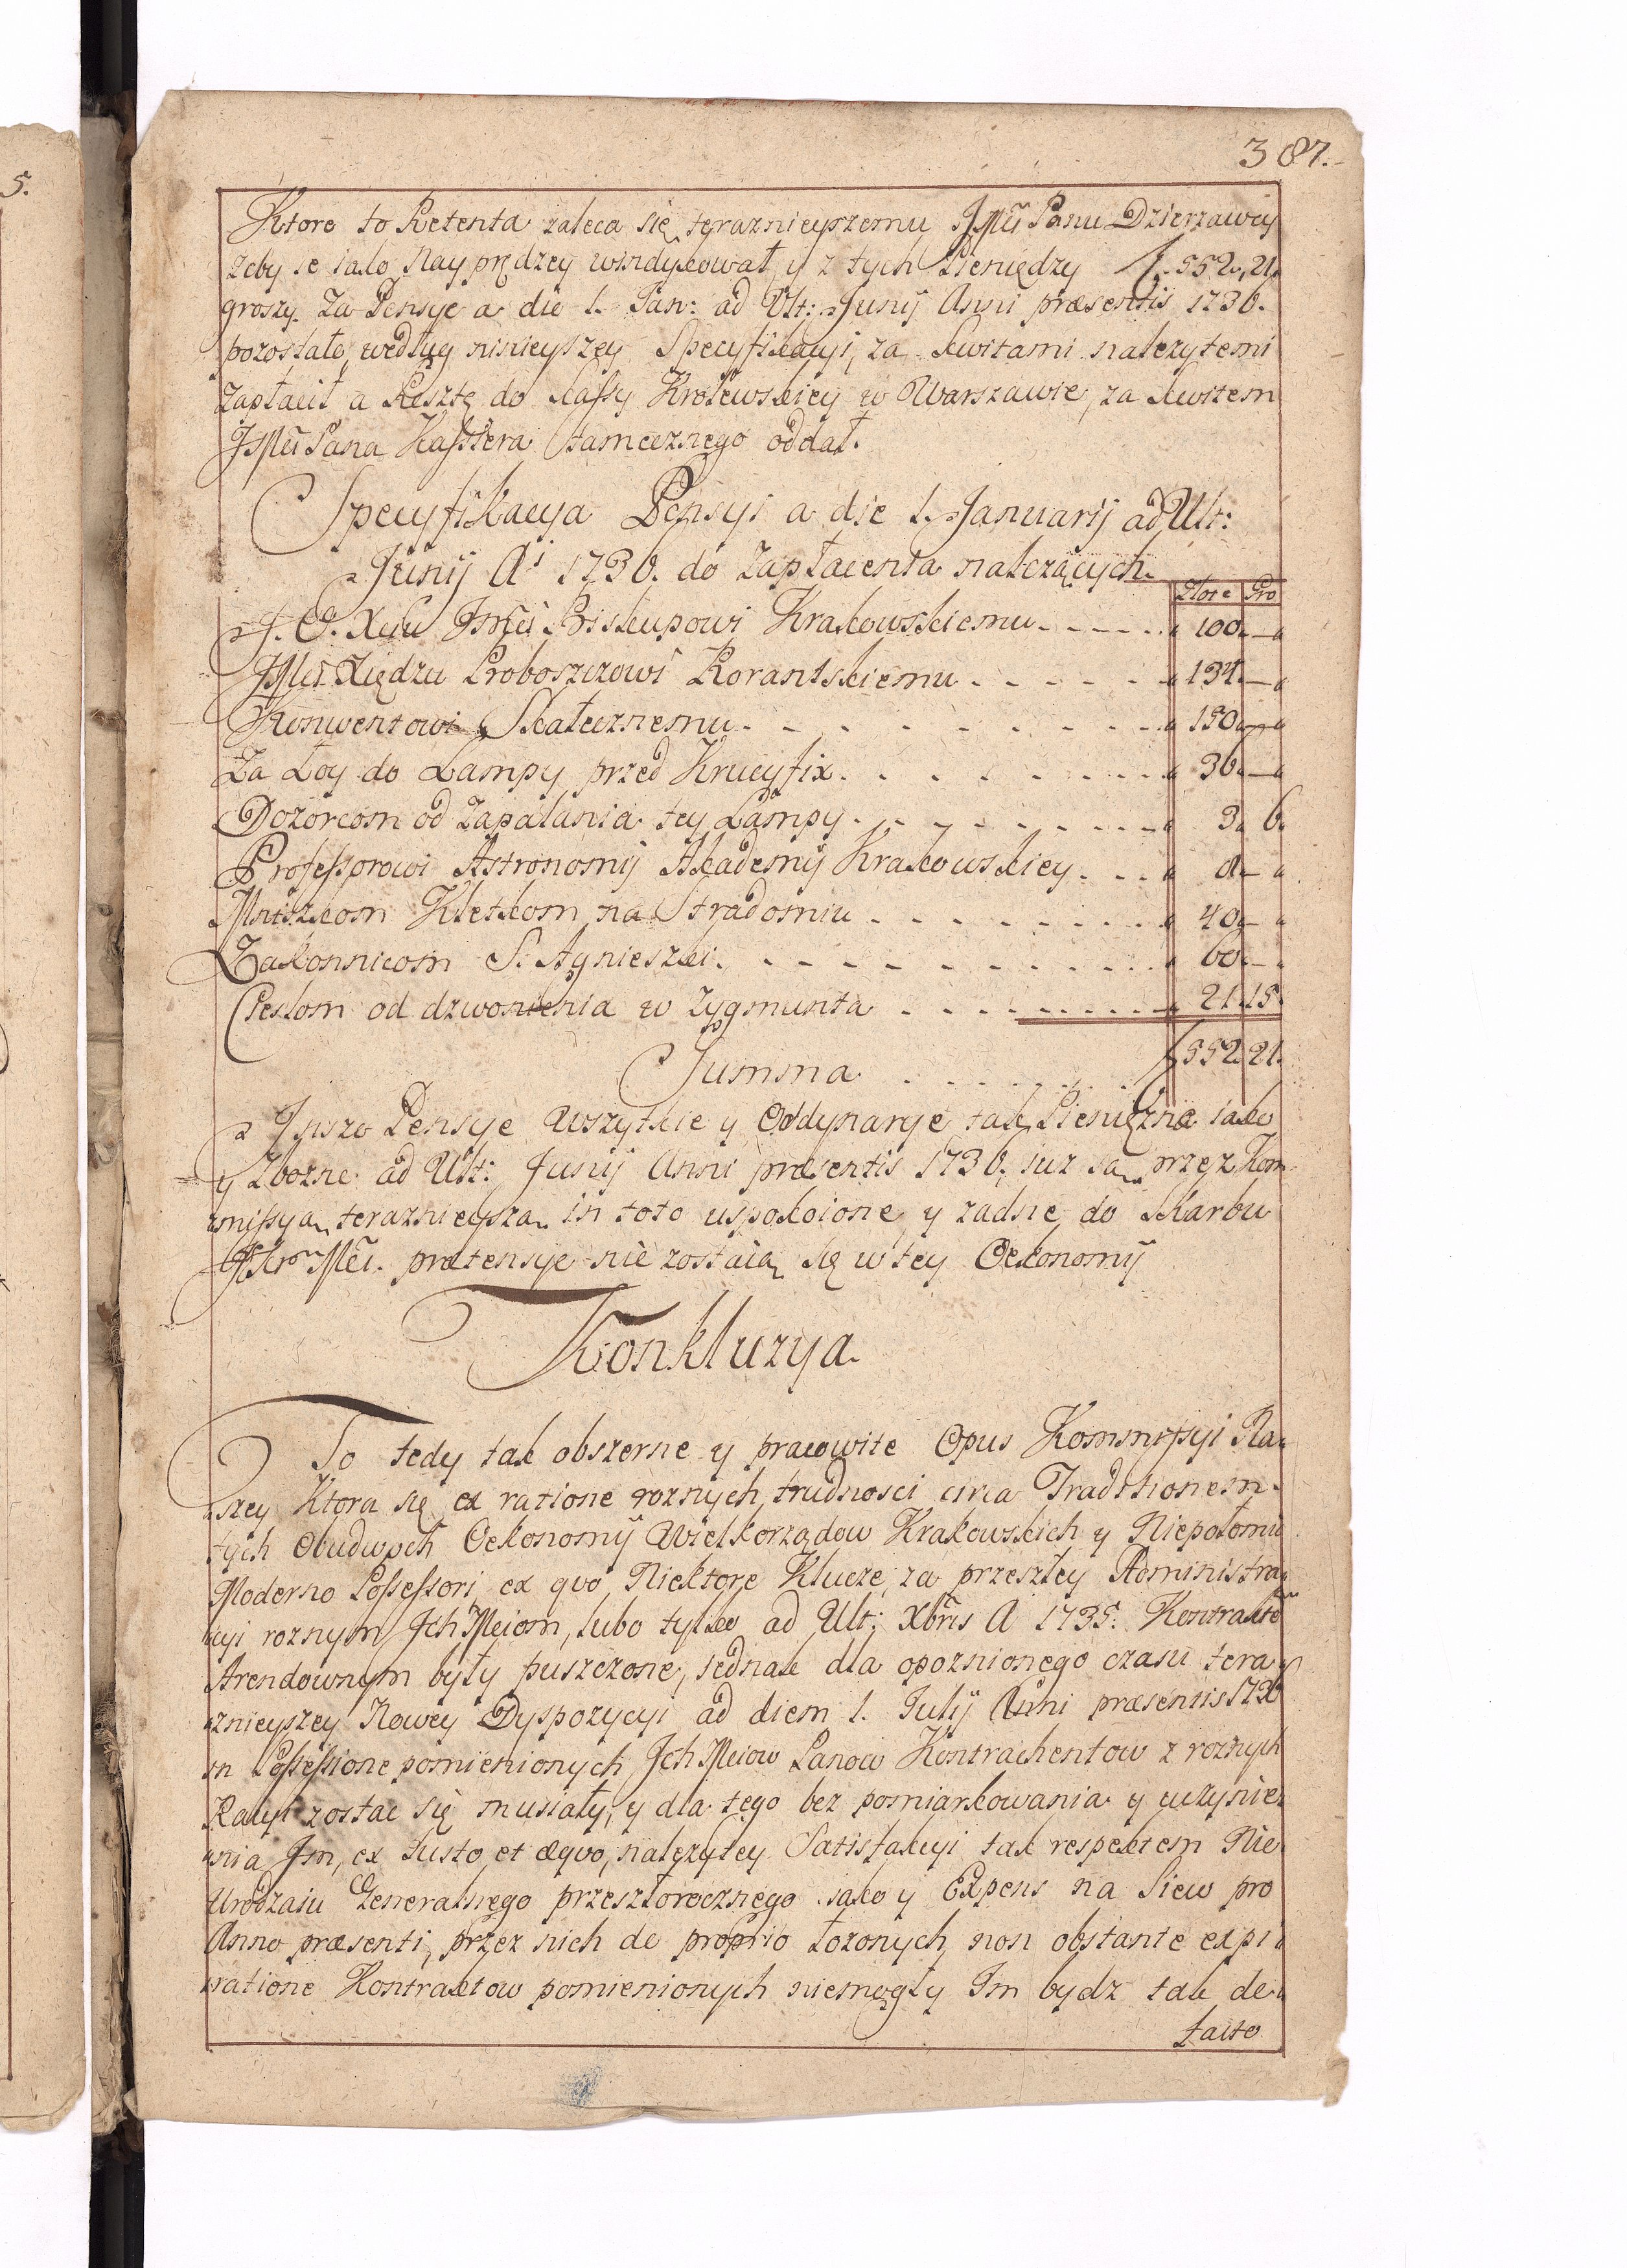 387.
5.
Ktore to Retenta zaleca się teraznieyszemu JMći Panu Dzierzawcy
zeby ie iako Nayprędzey windykował, y z tych Pieniędzy f. 552., 21.
groszy. Za Pensye a die 1. Jan: ad Ult: Junij Anni præsentis 1736.
pozostałe, według ninieyszey Specyfikacyi, za kwitami nalezytemi
zapłacił a Resztę do Kassy Krolewskiey w Warszawie, za kwitem
JMći Pana Kassiera tamecznego oddał.
Specyfikacya Pensyi a die 1. Januarij ad Ult:
Junij Ai 1736. do Zapłacenia nalezących.
Złote Gro
J. O. Xću Jmći Biskupowi Krakowskiemu - - - - - 100. —
JMći Xiędzu Proboszczowi Rorantskiemu - - - - - - 134. —
Konwentowi Skałecznemu - - - - - - - - - - 150. —
Za Łoy do Lampy przed Krucyfix - - - - - - - - 36. —
Dozorcom od Zapalania tey Lampy - - - - - - - - - 3. 6.
Professorowi Astronomij Akademij Krakowskiey - - - 8. —
Mniszkom Kletkom na Stradomiu - - - - - - - - - 40. —
Zakonnicom S. Agnieszki - - - - - - - - - - - 60. —
Cieslom od dzwonienia w Zygmunta - - - - - - - - - 21. 15.
Summa - - - - - - f 552. 21.
Insze Pensye wszytkie y Ordynarye tak Pienięzne iako
y Zbozne ad Ult: Junij Anni præsentis 1736. iuz są przez Kom-
missyą teraznieyszą in toto uspokoione, y zadne do Skarbu
JKr Mći. prætensye nie zostaią się w tey Oekonomij
Konkluzya.
To tedy tak obszerne y pracowite Opus Kommissyi Na-
szey Ktora się ex ratione roznych trudnosci circa Traditionem
tych Obudwoch Oekonomij Wielkorządow Krakowskich y Niepołomic
Moderno Possessori, ex quo Niektore Klucze, za przeszłey Administra-
cyi roznym Jch Mciom, lubo tylko ad Ult: Xbris A 1735. Kontraktē
Arendownym były puszczone, iednak dla opoznionego czasu tera-
znieyszey Nowey Dyspozycyi ad diem 1. Julij Anni præsentis 1736
in Possessione pomienionych Jch Mciow Panow Kontrahentow z roznych
Racyi zostac się musiały, y dla tego bez pomiarkowania y uczynie-
nia Jm, ex Justo et æquo, nalezytey Satisfakcyi tak respektem Nie-
Urodzaiu Generalnego przeszłorocznego iako y Expens na Siew pro
Anno præsenti, przez nich de proprio łozonych, non obstante expi-
ratione Kontraktow pomienionych niemogły Jm bydz tak de-
facto